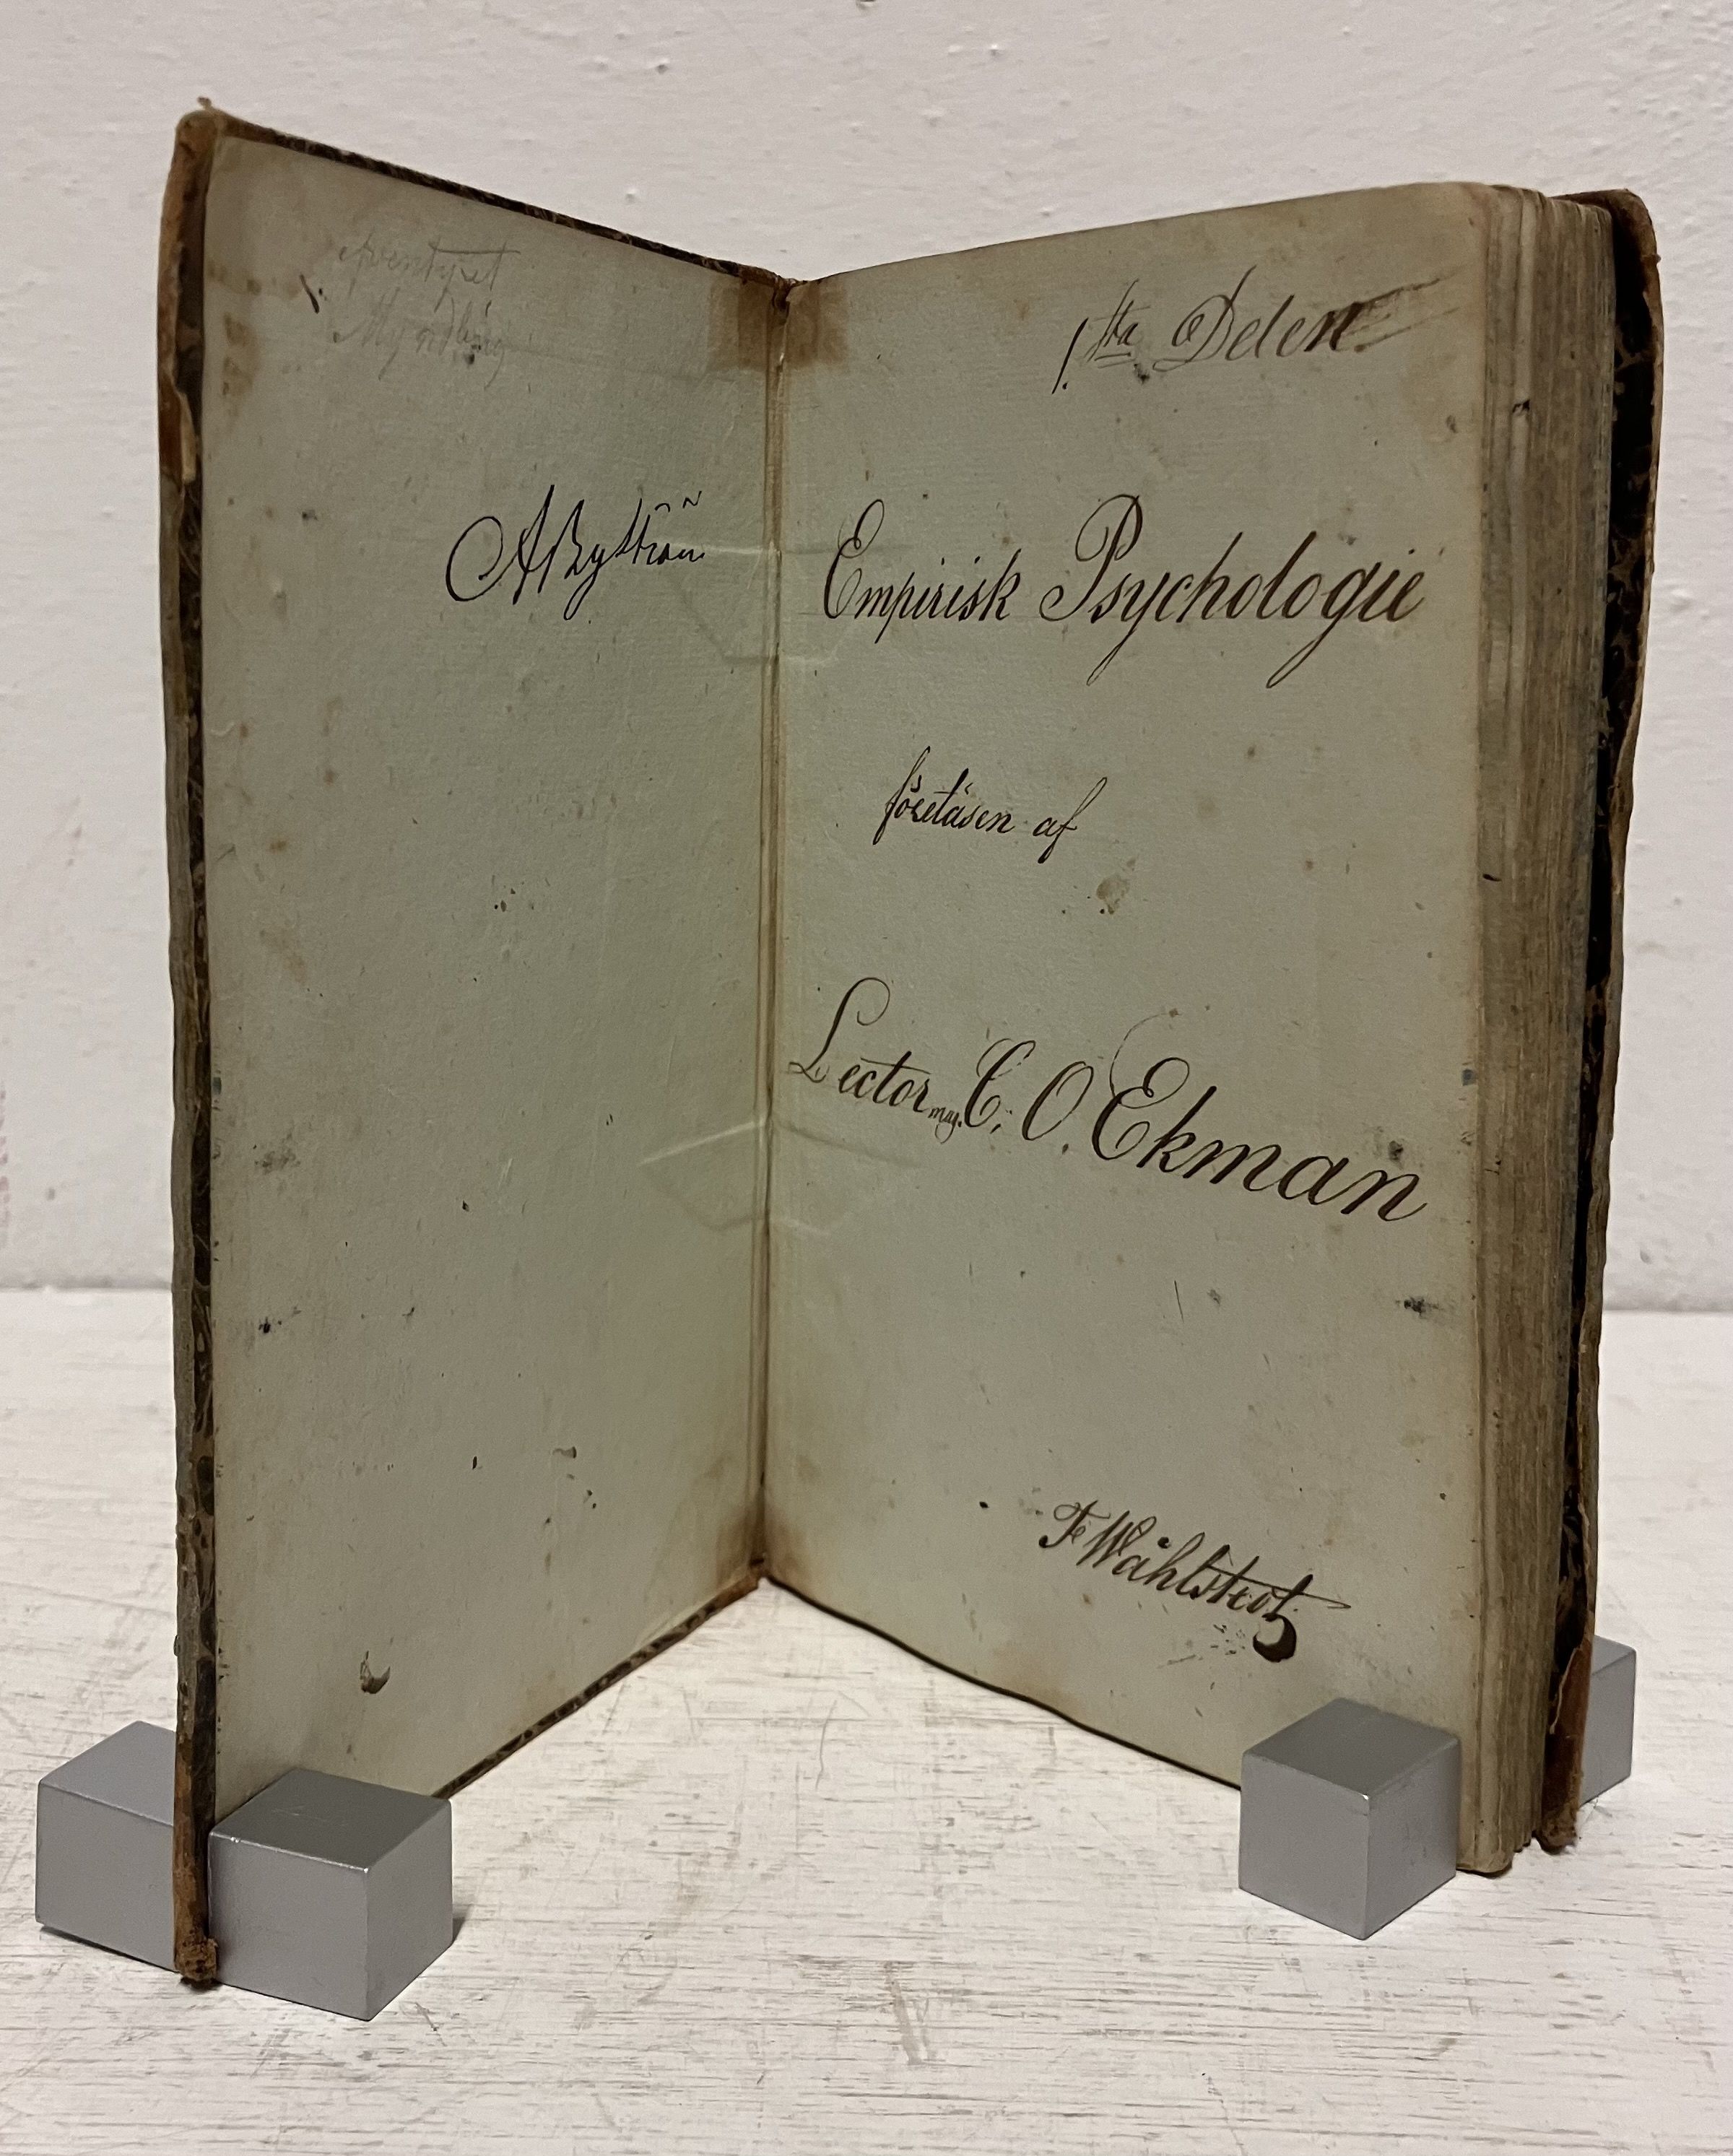 A Byström
1sta Delen
Empirisk Psychologie
föreläsen af
Lector mag. C. O. Ekman
F Wåhlstedt